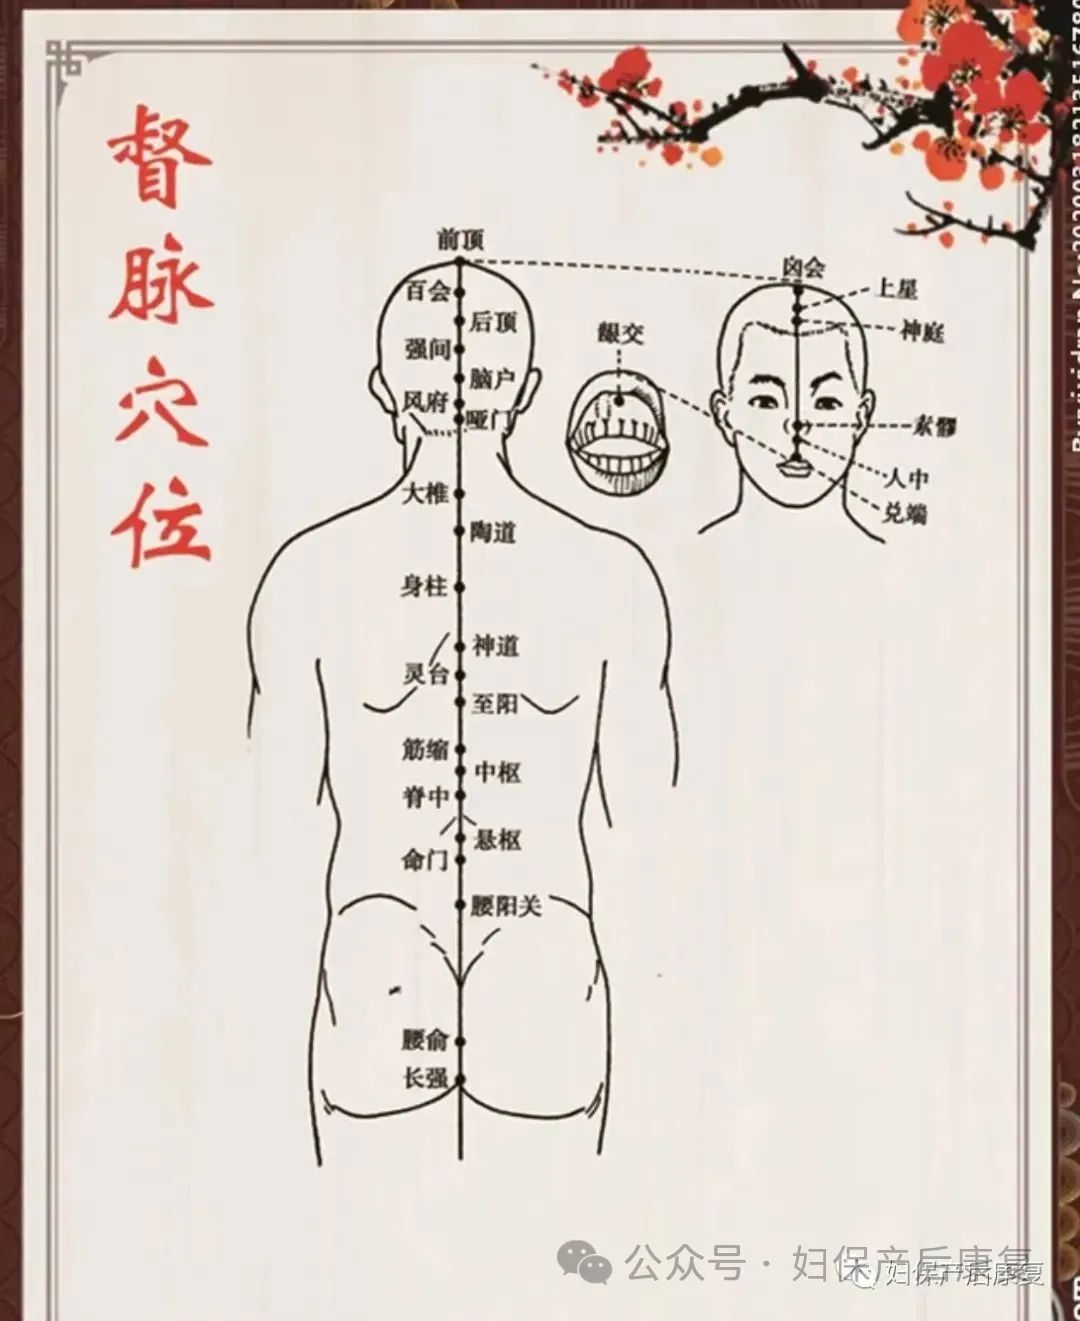 督脉穴位
前顶
百会
后顶
强间
脑户
风府
哑门
大椎
陶道
身柱
神道
灵台
至阳
筋缩
中枢
脊中
悬枢
命门
腰阳关
腰俞
长强
龈交
囟会
上星
神庭
素髎
人中
兑端
公众号·妇保产后康复
妇保产后康复